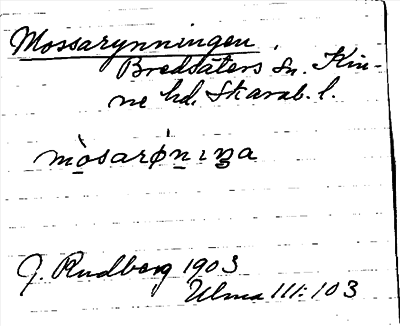 Mossarynningen,
Bredsäters sn. Kin-
ne hd, Skarab. l.
mo̱sarø̀ṉıŋa
G. Rudberg 1903
Ulma 111:103